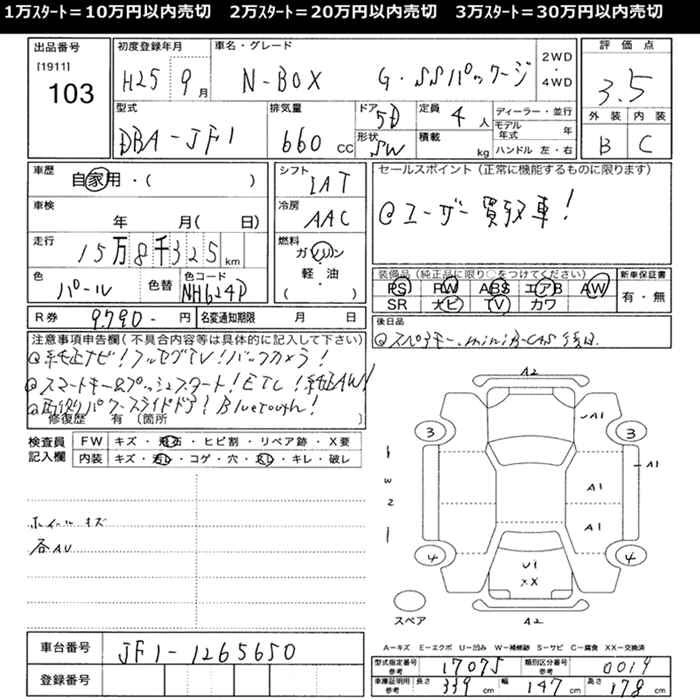 1万ｽﾀｰﾄ＝10万円以内売切　2万ｽﾀｰﾄ＝20万円以内売切　3万ｽﾀｰﾄ＝30万円以内売切
出品番号 [1911] 103
初度登録年月 H25 9月
車名・グレード N-BOX G・SSパッケージ 2WD・4WD
評価点 3.5
型式 DBA-JF1
排気量 660 CC
ドア 5D
形状 SW
定員 4人
積載 kg
ディーラー・並行
モデル年式 年
ハンドル 左・右
外装 B 内装 C
車歴 自家用・( )
車検 年 月( 日)
走行 15万8千325 km
色 パール 色替 色コード NH624P
シフト IAT
冷房 AAC
燃料 ガソリン・軽・油 ( )
セールスポイント（正常に機能するものに限ります）
@ユーザー買取車!
装備品（純正品に限り○をつけてください）
PS PW ABS エアB AW
SR ナビ TV カワ
新車保証書 有・無
R券 9790- 円 名変通知期限 ( 月 日)
後日品
@スペアキー、miniB-CAS後日
注意事項申告欄(不具合内容等は具体的に記入して下さい)
@純正ナビ!フルセグTV!バックカメラ!
@スマートキー&プッシュスタート!ETC!純正AW!
@両側パワースライドドア!Bluetooth!
修復歴 有〔箇所 〕
検査員記入欄
FW キズ・飛石・ヒビ割・リペア跡・X要
内装 キズ・汚レ・コゲ・穴・スレ・キレ・破レ
ホイールキズ
各AU
A2
A1
3 3
A1
W2
A1
A1
4 4
U1
XX
スペア
A2
車台番号 JF1-1265650
登録番号
A－キズ E－エクボ U－凹み W－補修跡 S－サビ C－腐食 XX－交換済
型式指定番号 参考 17075 類別区分番号 参考 0019
車庫証明用 参考 長さ 339 cm 幅 147 cm 高さ 178 cm